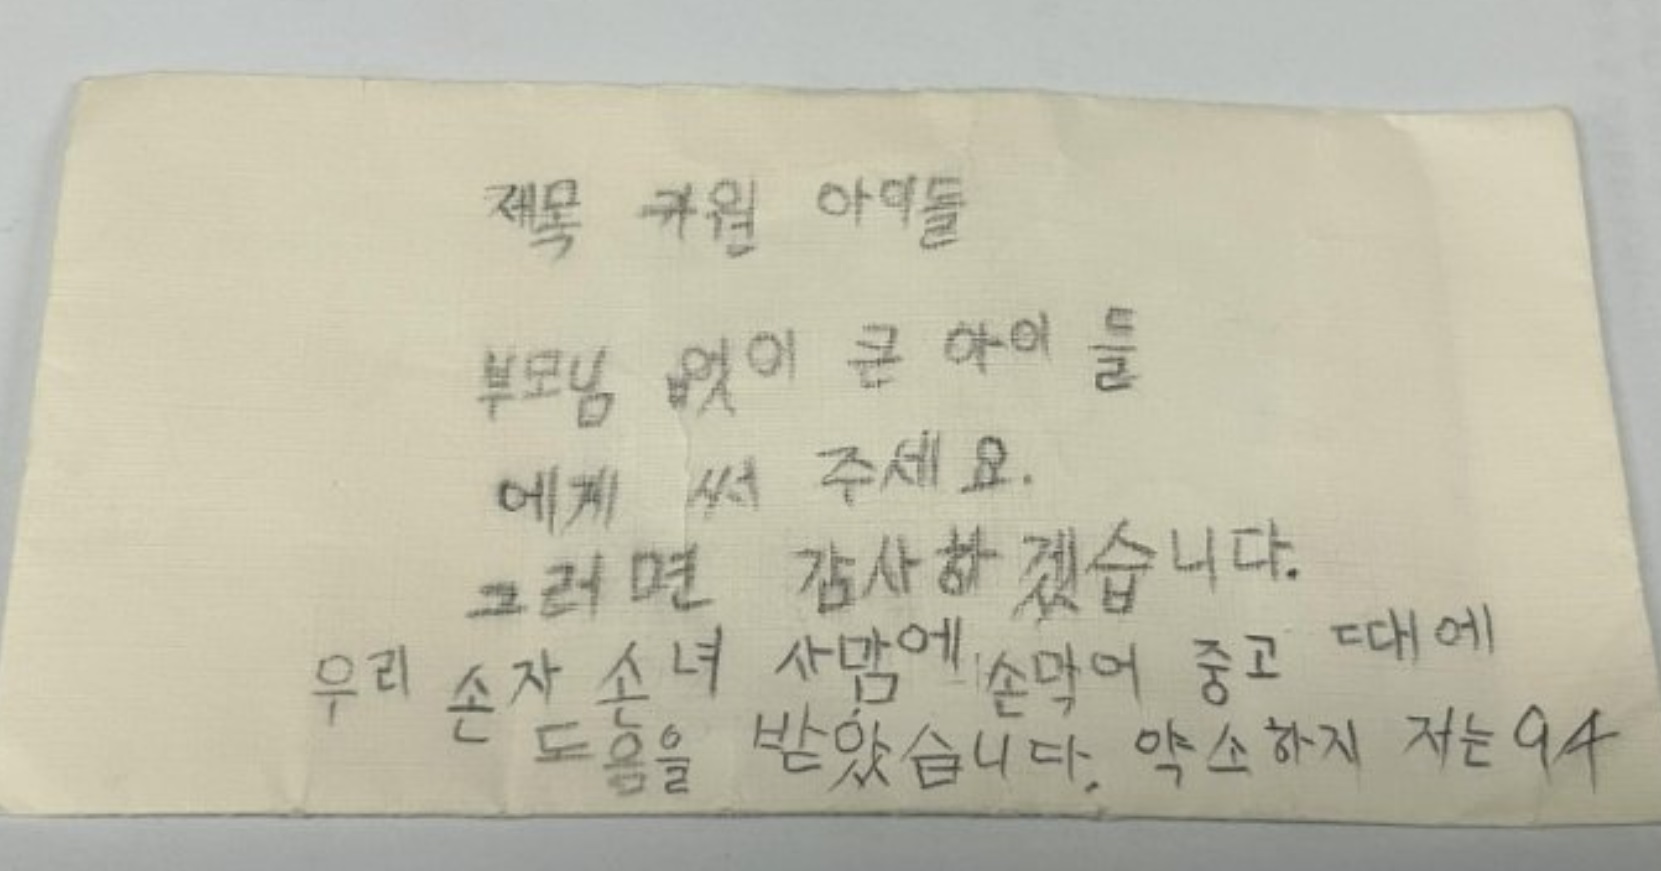 제목 귀월 아이들
부모님 없이 큰 아이들
에게 써 주세요.
그러면 감사하겠습니다.
우리 손자 손녀 사맘에 손막어 중고 때에
도움을 받았습니다. 약소하지 저는 94